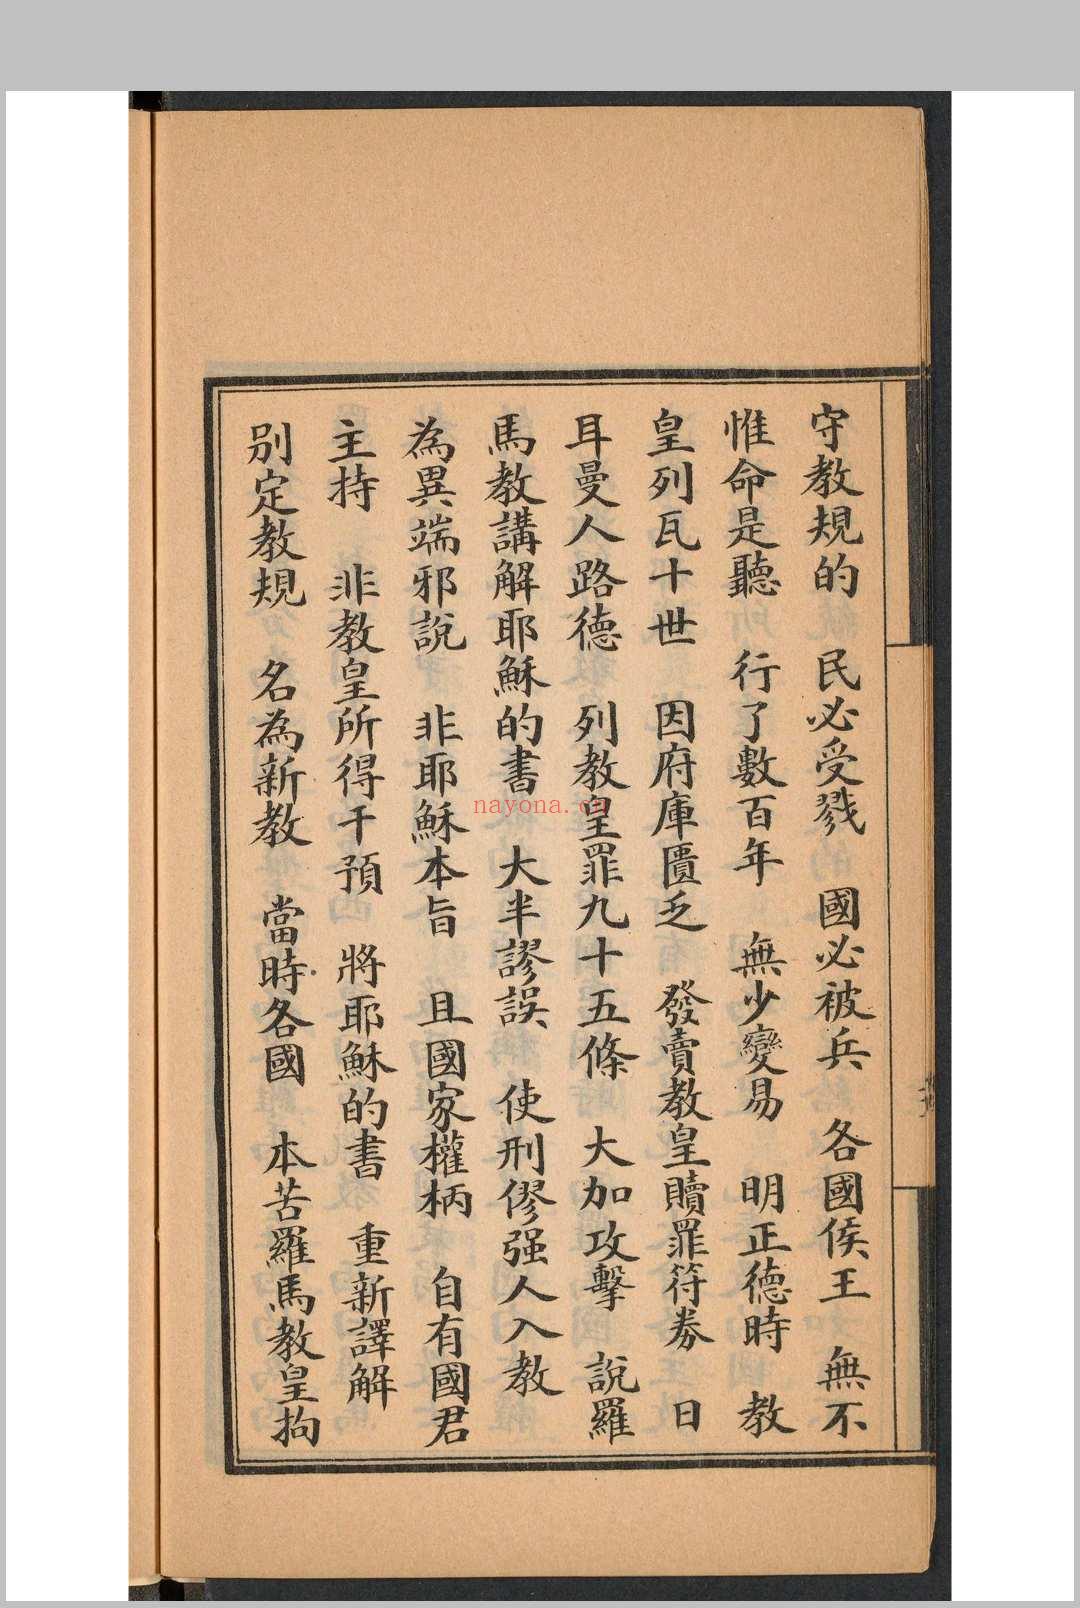 守教規的　民必受戮　國必被兵　各國侯王　無不
惟命是聽　行了數百年　無少變易　明正德時　教
皇列瓦十世　因府庫匱乏　發賣教皇贖罪符券　日
耳曼人路德　列教皇罪九十五條　大加攻擊　說羅
馬教講解耶穌的書　大半謬誤　使刑僇强人入教
為異端邪說　非耶穌本旨　且國家權柄　自有國君
主持　非教皇所得干預　將耶穌的書　重新譯解
別定教規　名為新教　當時各國　本苦羅馬教皇拘
nayona.cn